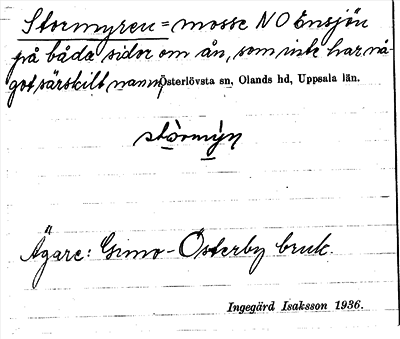 Stormyren = mosse NO Ensjön
på båda sidor om ån, som inte har nå-
got särskilt namn, Österlövsta sn, Olands hd, Uppsala län.
stòrmy̆n
Ägare: Gimo-Österby bruk.
Ingegärd Isaksson 1936.